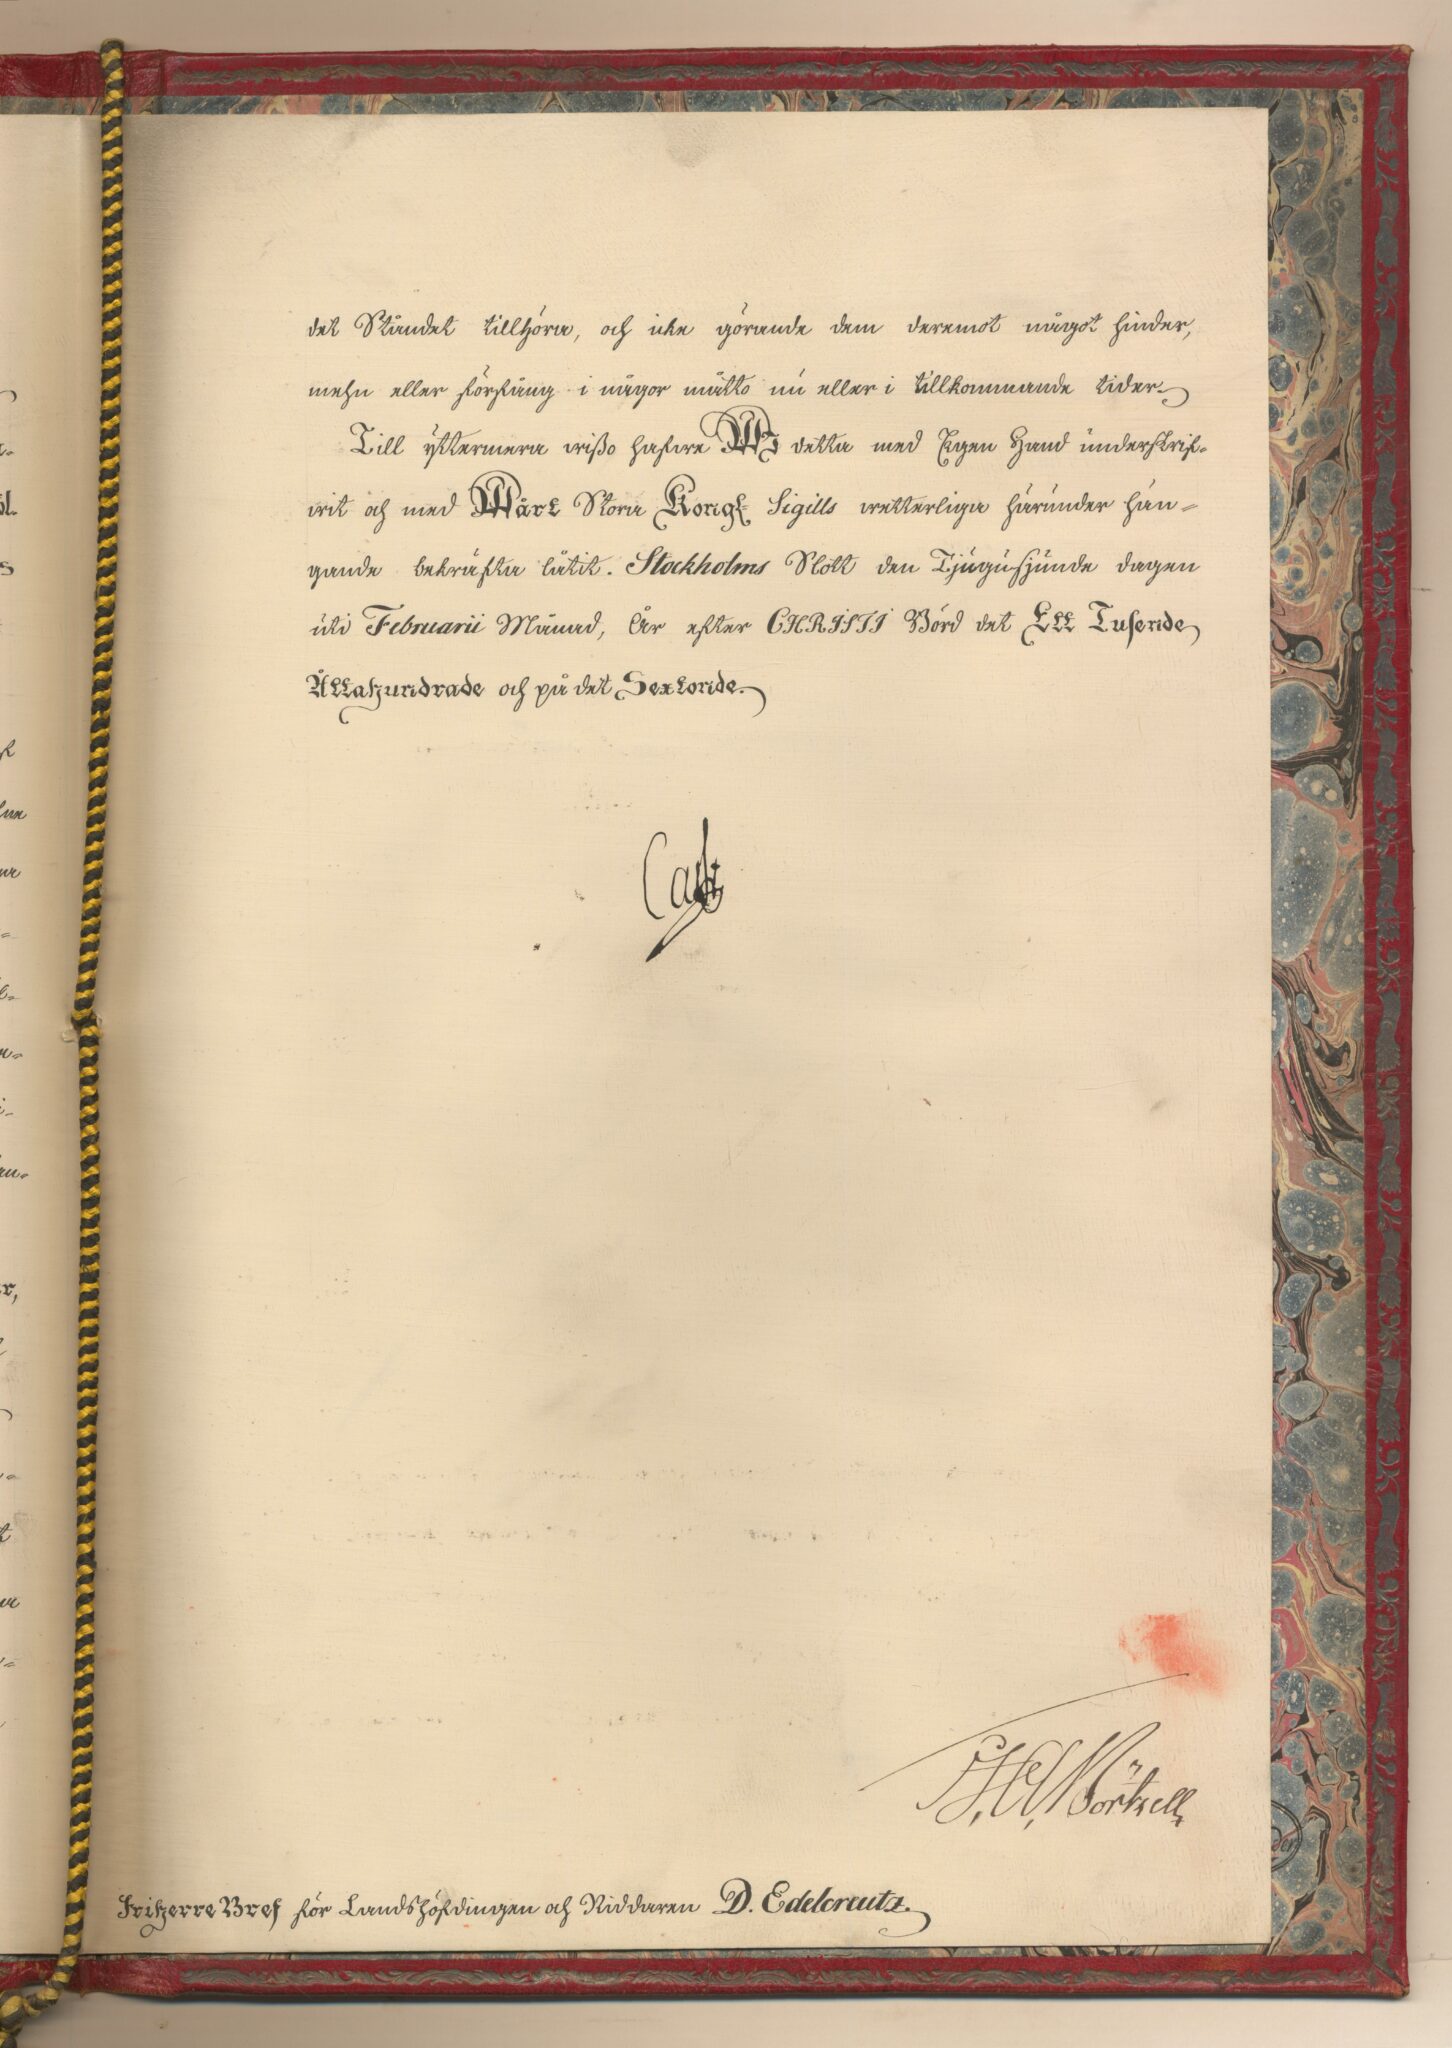 det Ståndet tillhöra, och icke görande dem deremot något hinder,
mehn eller förfång i någor måtto nu eller i tillkommande tider.
Till yttermera wißo hafwe Wi detta med Egen Hand underskrif-
wit och med Wårt Stora Kongl Sigills wetterliga härunder hän=
gande bekräfta låtit. Stockholms Slott den Tjugusjunde dagen
uti Februarii Månad, År efter CHRISTI Börd det Ett Tusende
Åttahundrade och på det Sextonde.
Carl
Friherre Bref för Landshöfdingen och Riddaren D. Edelcrautz.